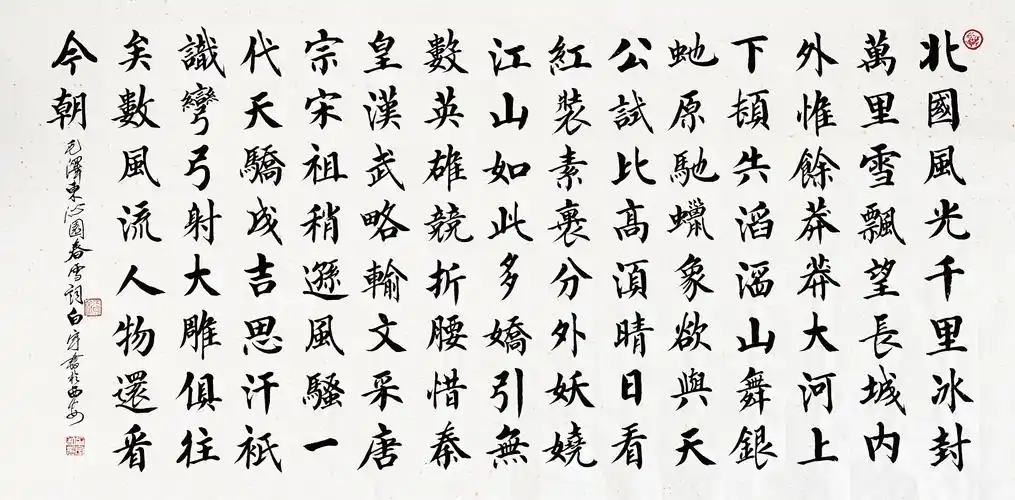 北國風光千里冰封
萬里雪飄望長城內
外惟餘莽莽大河上
下頓失滔滔山舞銀
虵原馳蠟象欲與天
公試比高須晴日看
紅裝素裹分外妖嬈
江山如此多嬌引無
數英雄競折腰惜秦
皇漢武略輸文采唐
宗宋祖稍遜風騷一
代天驕成吉思汗祇
識彎弓射大雕俱往
矣數風流人物還看
今朝
毛澤東沁園春雪詞白宇書於西安